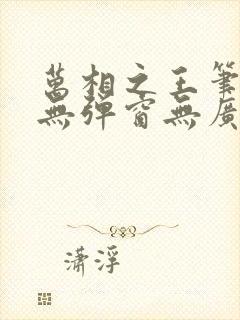 萬相之王筆
無彈窗無廣
瀟浮